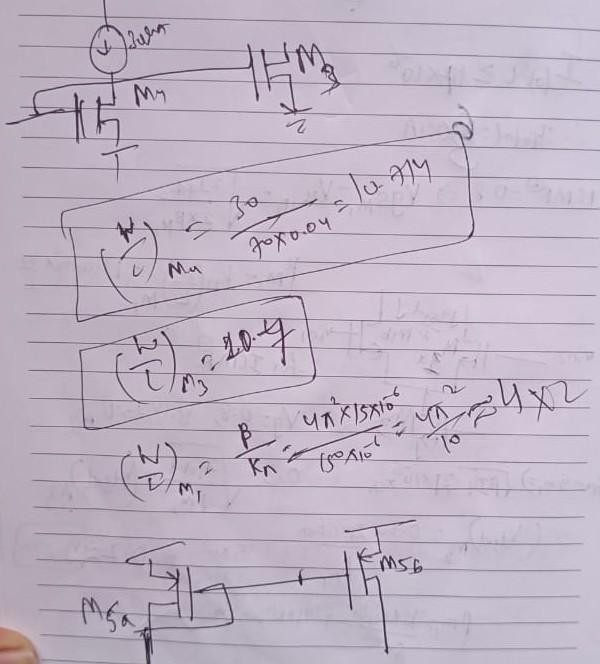 30uA
M4
M3
(W/L)M4 = 30/(70×0.04) = 10.714
(W/L)M3 = 10.7
(W/L)M1 = β/Kn = 4π²×15×10⁻⁶/(150×10⁻⁶) = 4π²/10 ≈ 4×2
M5a
M5b